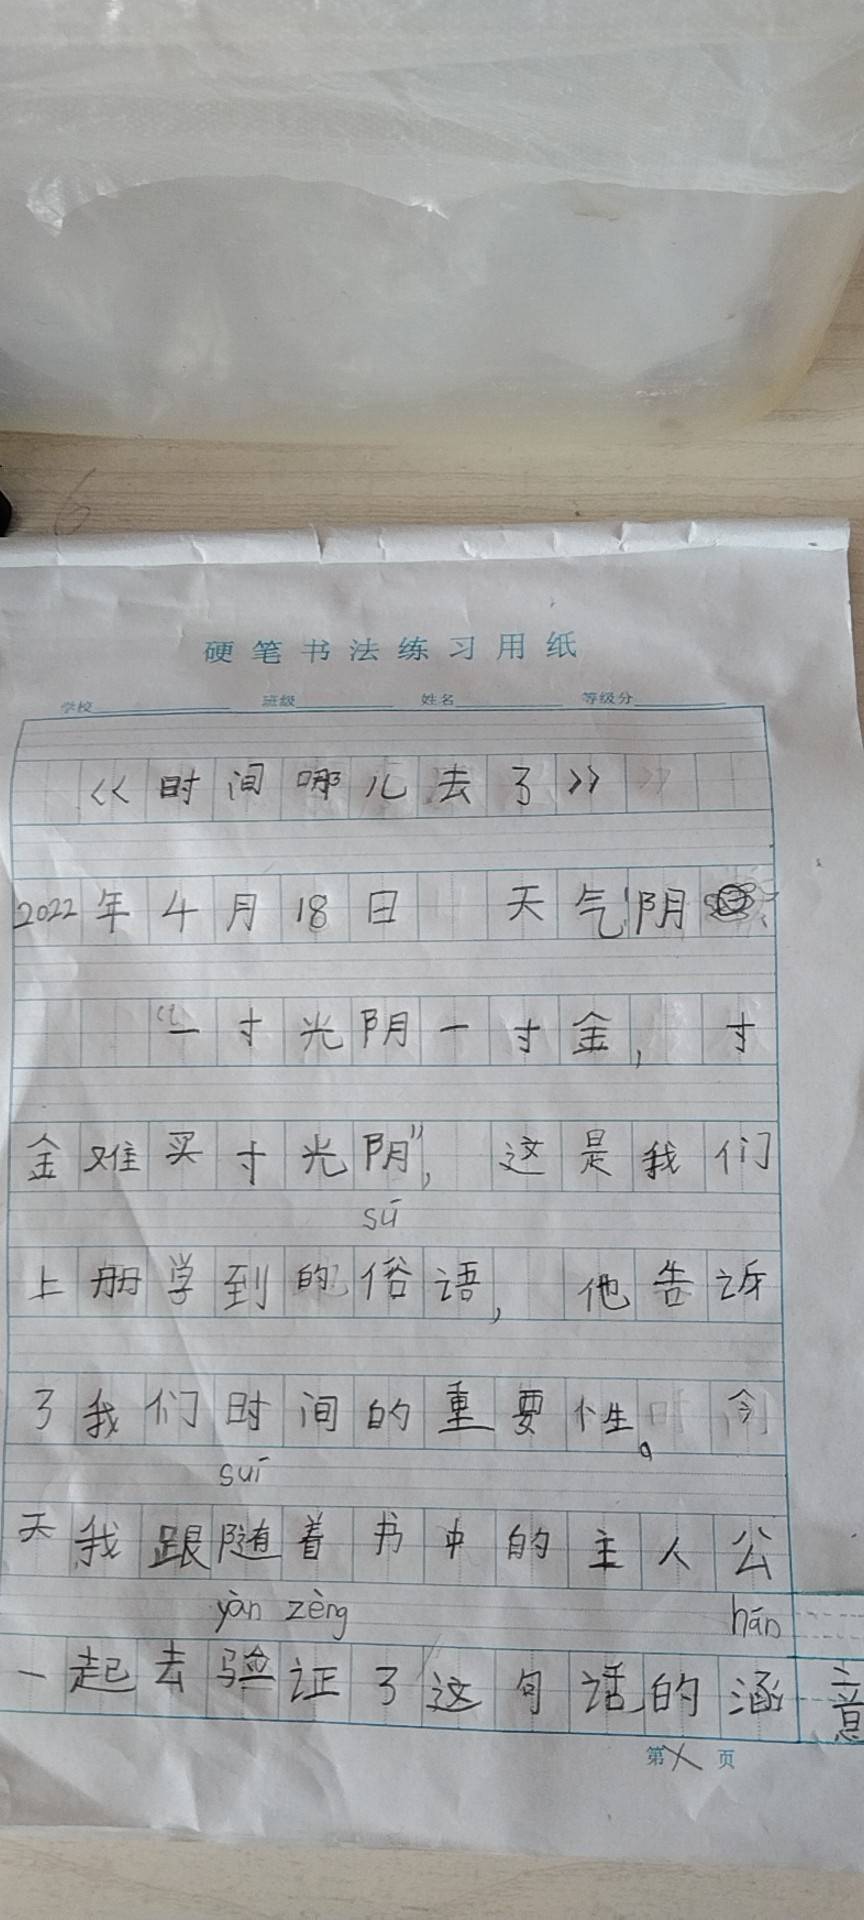 6
硬笔书法练习用纸
学校 班级 姓名 等级分
《时间哪儿去了》
2022年4月18日 天气阴
“一寸光阴一寸金，寸
金难买寸光阴”，这是我们
sú
上册学到的俗语，他告诉
了我们时间的重要性。今
suí
天我跟随着书中的主人公
yàn zèng hán
一起去验证了这句话的涵意
第 页